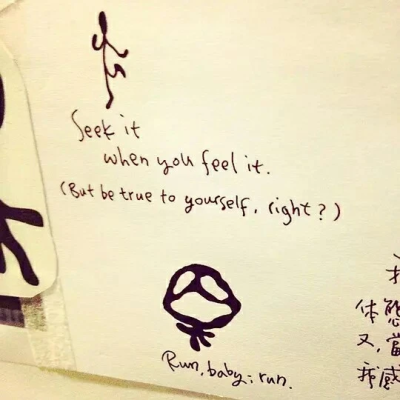 Seek it
when you feel it.
(But be true to yourself, right?)
Run, baby; run.
我
体態
又,當
我感